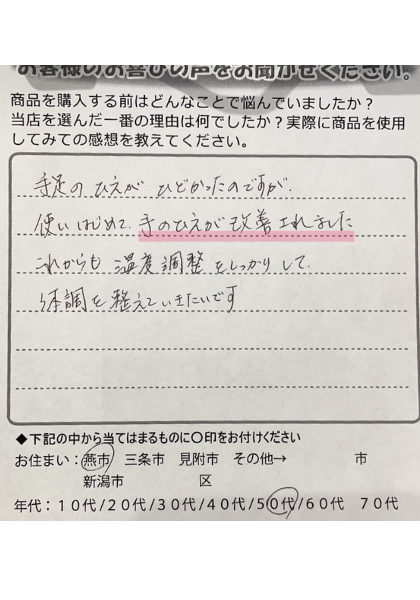 お客様のお喜びの声をお聞かせください。
商品を購入する前はどんなことで悩んでいましたか？
当店を選んだ一番の理由は何でしたか？実際に商品を使用
してみての感想を教えてください。
手足の ひえが ひどかったのですが、
使いはじめて、手のひえが改善されました
これからも 温度調整をしっかりして、
体調を整えていきたいです
◆下記の中から当てはまるものに〇印をお付けください
お住まい：燕市 三条市 見附市 その他→ 市
新潟市 区
年代：１０代/２０代/３０代/４０代/５０代/６０代 ７０代